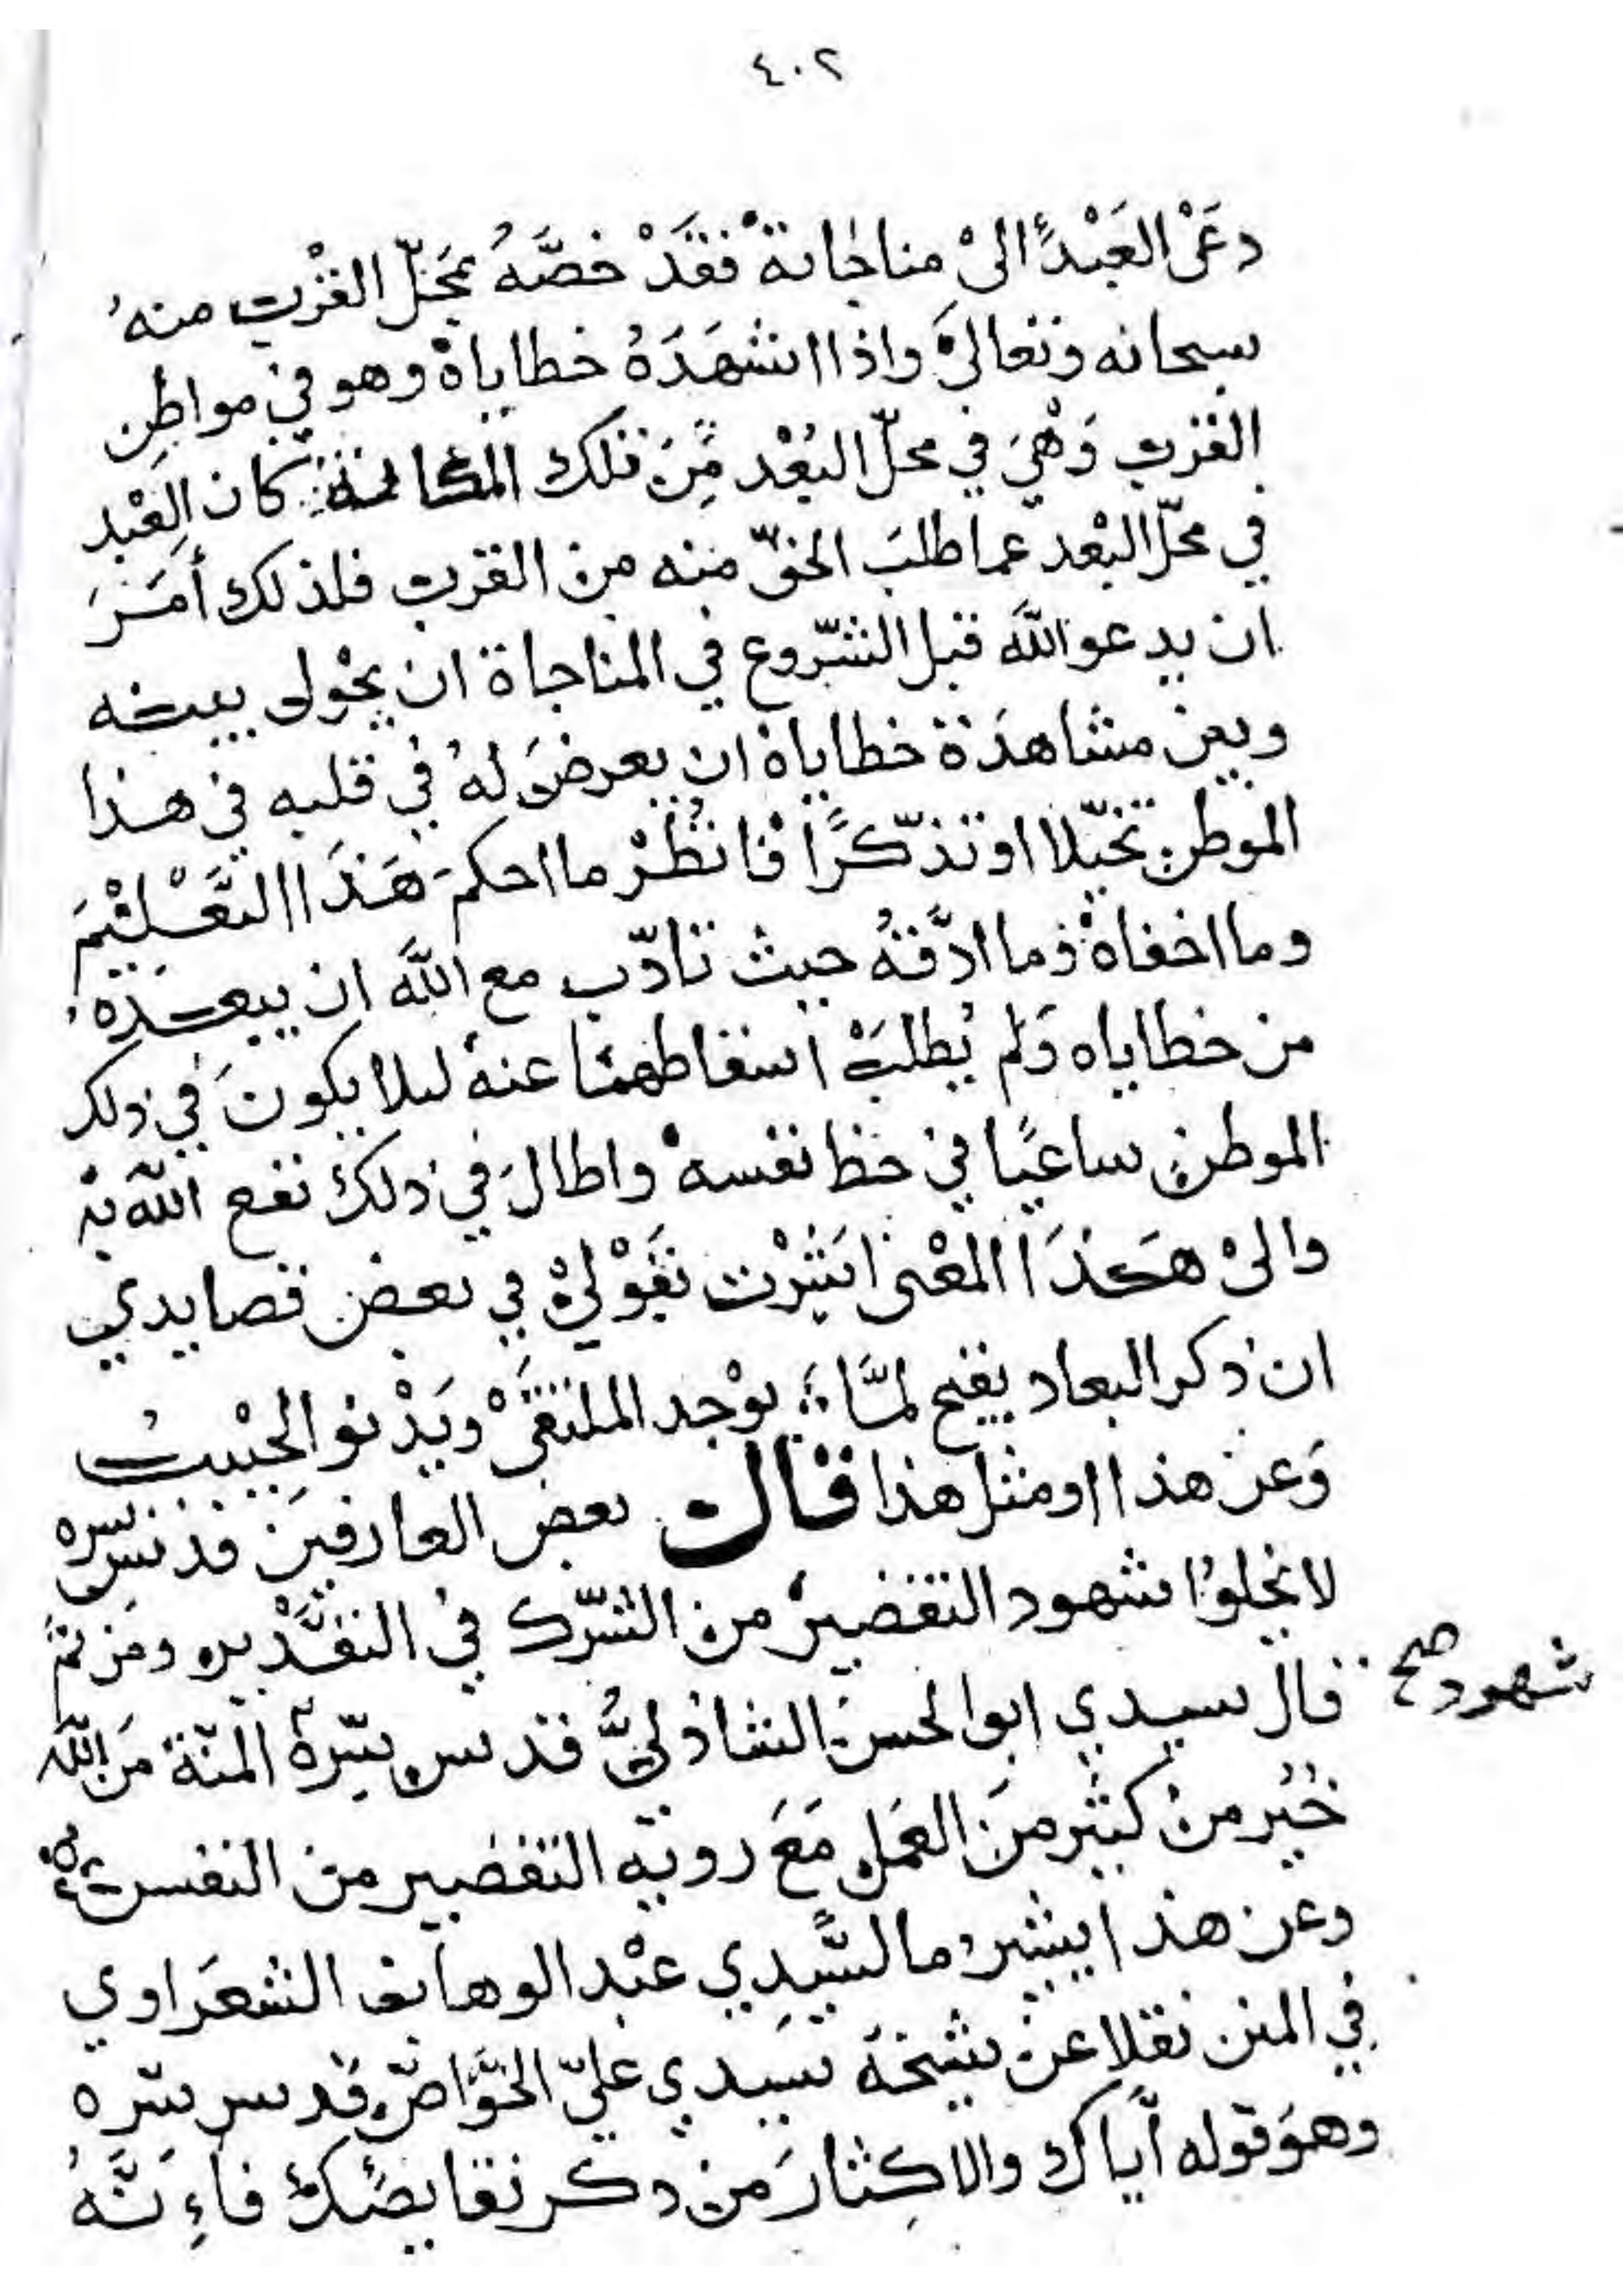 ٤٠٢
دعَى العَبْدَ الىْ مناجاتهْ فقَدْ خصَّهُ بمَحَلّ القُرْب منهُ
سبحانه وتعالىَ واذا اشهَدَهُ خطاياهْ وهو في مواطِن
القرب وَهْيَ في محلّ البُعْد مِّنَ تلك المكانة كان العَبْد
في محَلّ البْعد عما طلبَ الحقّ منه من القرب فلذلك أمَرَ
ان يدعو اللَّه قبل الشّروع في المناجاة ان يحْول بينه
وبين مشاهدَة خطاياهْ ان يعرضَ لهُ في قلبه في هذا
الموطن تخيّلا او تذّكرًا فانْظُرْ ما احكمَ هَذَا التَّعْليْمَ
وما اخفاهْ وما ادَّقهُ حيث تادّب مع اللَّه ان يبعدَهُ
من خطاياه وَلم يُطلبْ اسقاطهمْا عنهُ ليلا يكونَ في ذلك
الموطن ساعيًا في حظ نفسهْ واطالَ في ذلك نفع اللّه به
والىْ هَذَا المعْنى اشَرْت بقَوْليْ في بعض قصايدي
ان ذكر البعاد يقبح لمَّا ؛ يوْجد الملتقىْ ويَدْنو الحبْيبُ
وَعن هذا او مثل هذا قال بعض العارفين قدس سره
لا يخلوا شهود التقصير من الشّرك في التقْدير ومن ثمّ
شهود صح
قال سيدي ابو الحسن الشاذليُّ قدس سّرهُ المنّة من اللّه
خُيْر من كثير منَ العمَل مَعَ روية التقصير من النفس
وعن هذا يشير ما لسَّيدي عبْد الوهاب الشعَراوي
في المنن نقلا عن شيخهَ سيدي عليّ الخوَّاصّ قدس سره
وهوَ قوله أيّاك والاكِثارَ من ذكر نقايصك فاءِنَّهُ